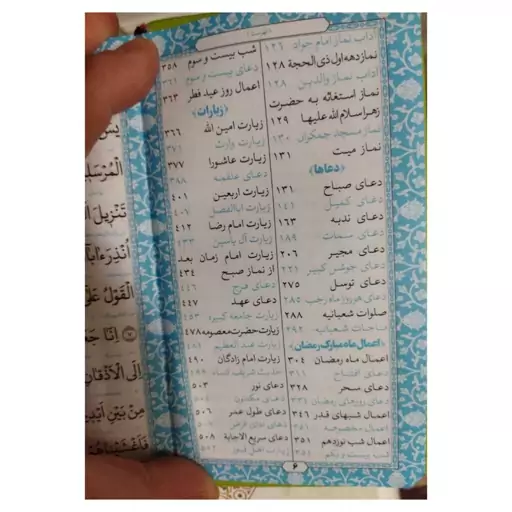 آداب نماز امام جواد ۱۲۶
نماز دهه اول ذی الحجة ۱۲۸
آداب نماز والدین ۱۲۸
نماز استغاثه به حضرت
زهرا سلام الله علیها ۱۲۹
نماز مسجد جمکران ۱۳۰
نماز میت ۱۳۱
﴿دعاها﴾
دعای صباح ۱۳۱
دعای کمیل ۱۴۱
دعای ندبه ۱۶۳
دعای سمات ۱۸۹
دعای مجیر ۲۰۶
دعای جوشن کبیر ۲۲۱
دعای توسل ۲۷۵
دعای هرروز ماه رجب ۲۸۵
صلوات شعبانیه ۲۸۸
مناجات شعبانیه ۲۹۲
﴿اعمال ماه مبارک رمضان﴾
اعمال ماه رمضان ۳۰۴
دعای افتتاح ۳۱۱
دعای سحر ۳۲۸
دعای روزهای رمضان ۳۳۱
اعمال شبهای قدر ۳۴۶
اعمال مخصوصه ۳۵۱
اعمال شب نوزدهم ۳۵۱
شب بیست و یکم ۳۵۱
شب بیست و سوم ۳۵۸
دعای بیست و سوم ۳۶۱
اعمال روز عید فطر ۳۶۳
﴿زیارات﴾
زیارت امین الله ۳۶۶
زیارت وارث ۳۷۱
زیارت عاشورا ۳۷۷
دعای علقمه ۳۸۸
زیارت اربعین ۴۰۱
زیارت اباالفضل ۴۰۷
زیارت امام رضا ۴۱۲
زیارت آل یاسین ۴۲۳
زیارت امام زمان بعد
از نماز صبح ۴۳۴
دعای فرج ۴۴۶
دعای عهد ۴۴۷
زیارت جامعه کبیره ۴۵۳
زیارت حضرت معصومه ۴۷۸
زیارت عبد العظیم ۴۸۱
زیارت امام زادگان ۴۹۰
حدیث شریف کساء
دعای نور ۵۰۳
دعای طول عمر ۵۰۶
دعای سریع الاجابة ۵۰۸
زیارت اهل قبور
۶